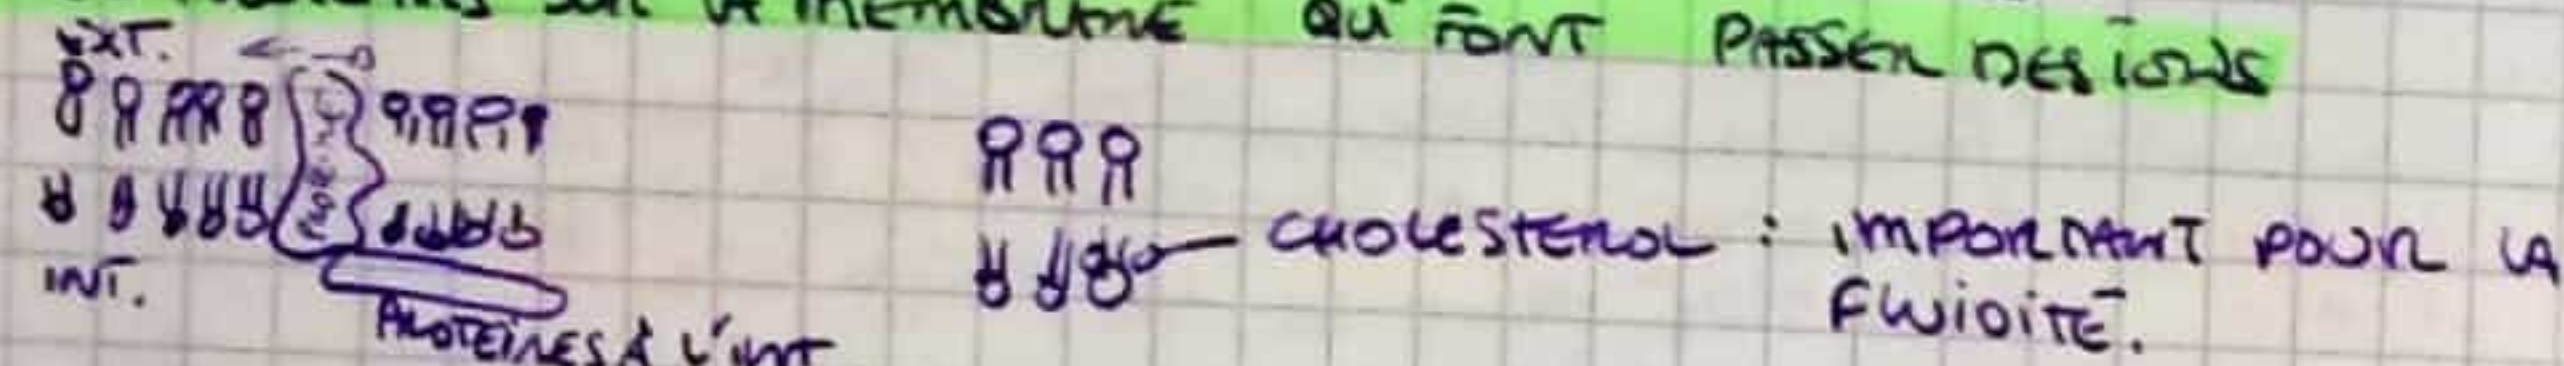 SUR LA MEMBRANE QUI FONT PASSER DES IONS
EXT.
INT.
PROTEÏNES À L'INT
CHOLESTEROL : IMPORTANT POUR LA
FLUIDITÉ.